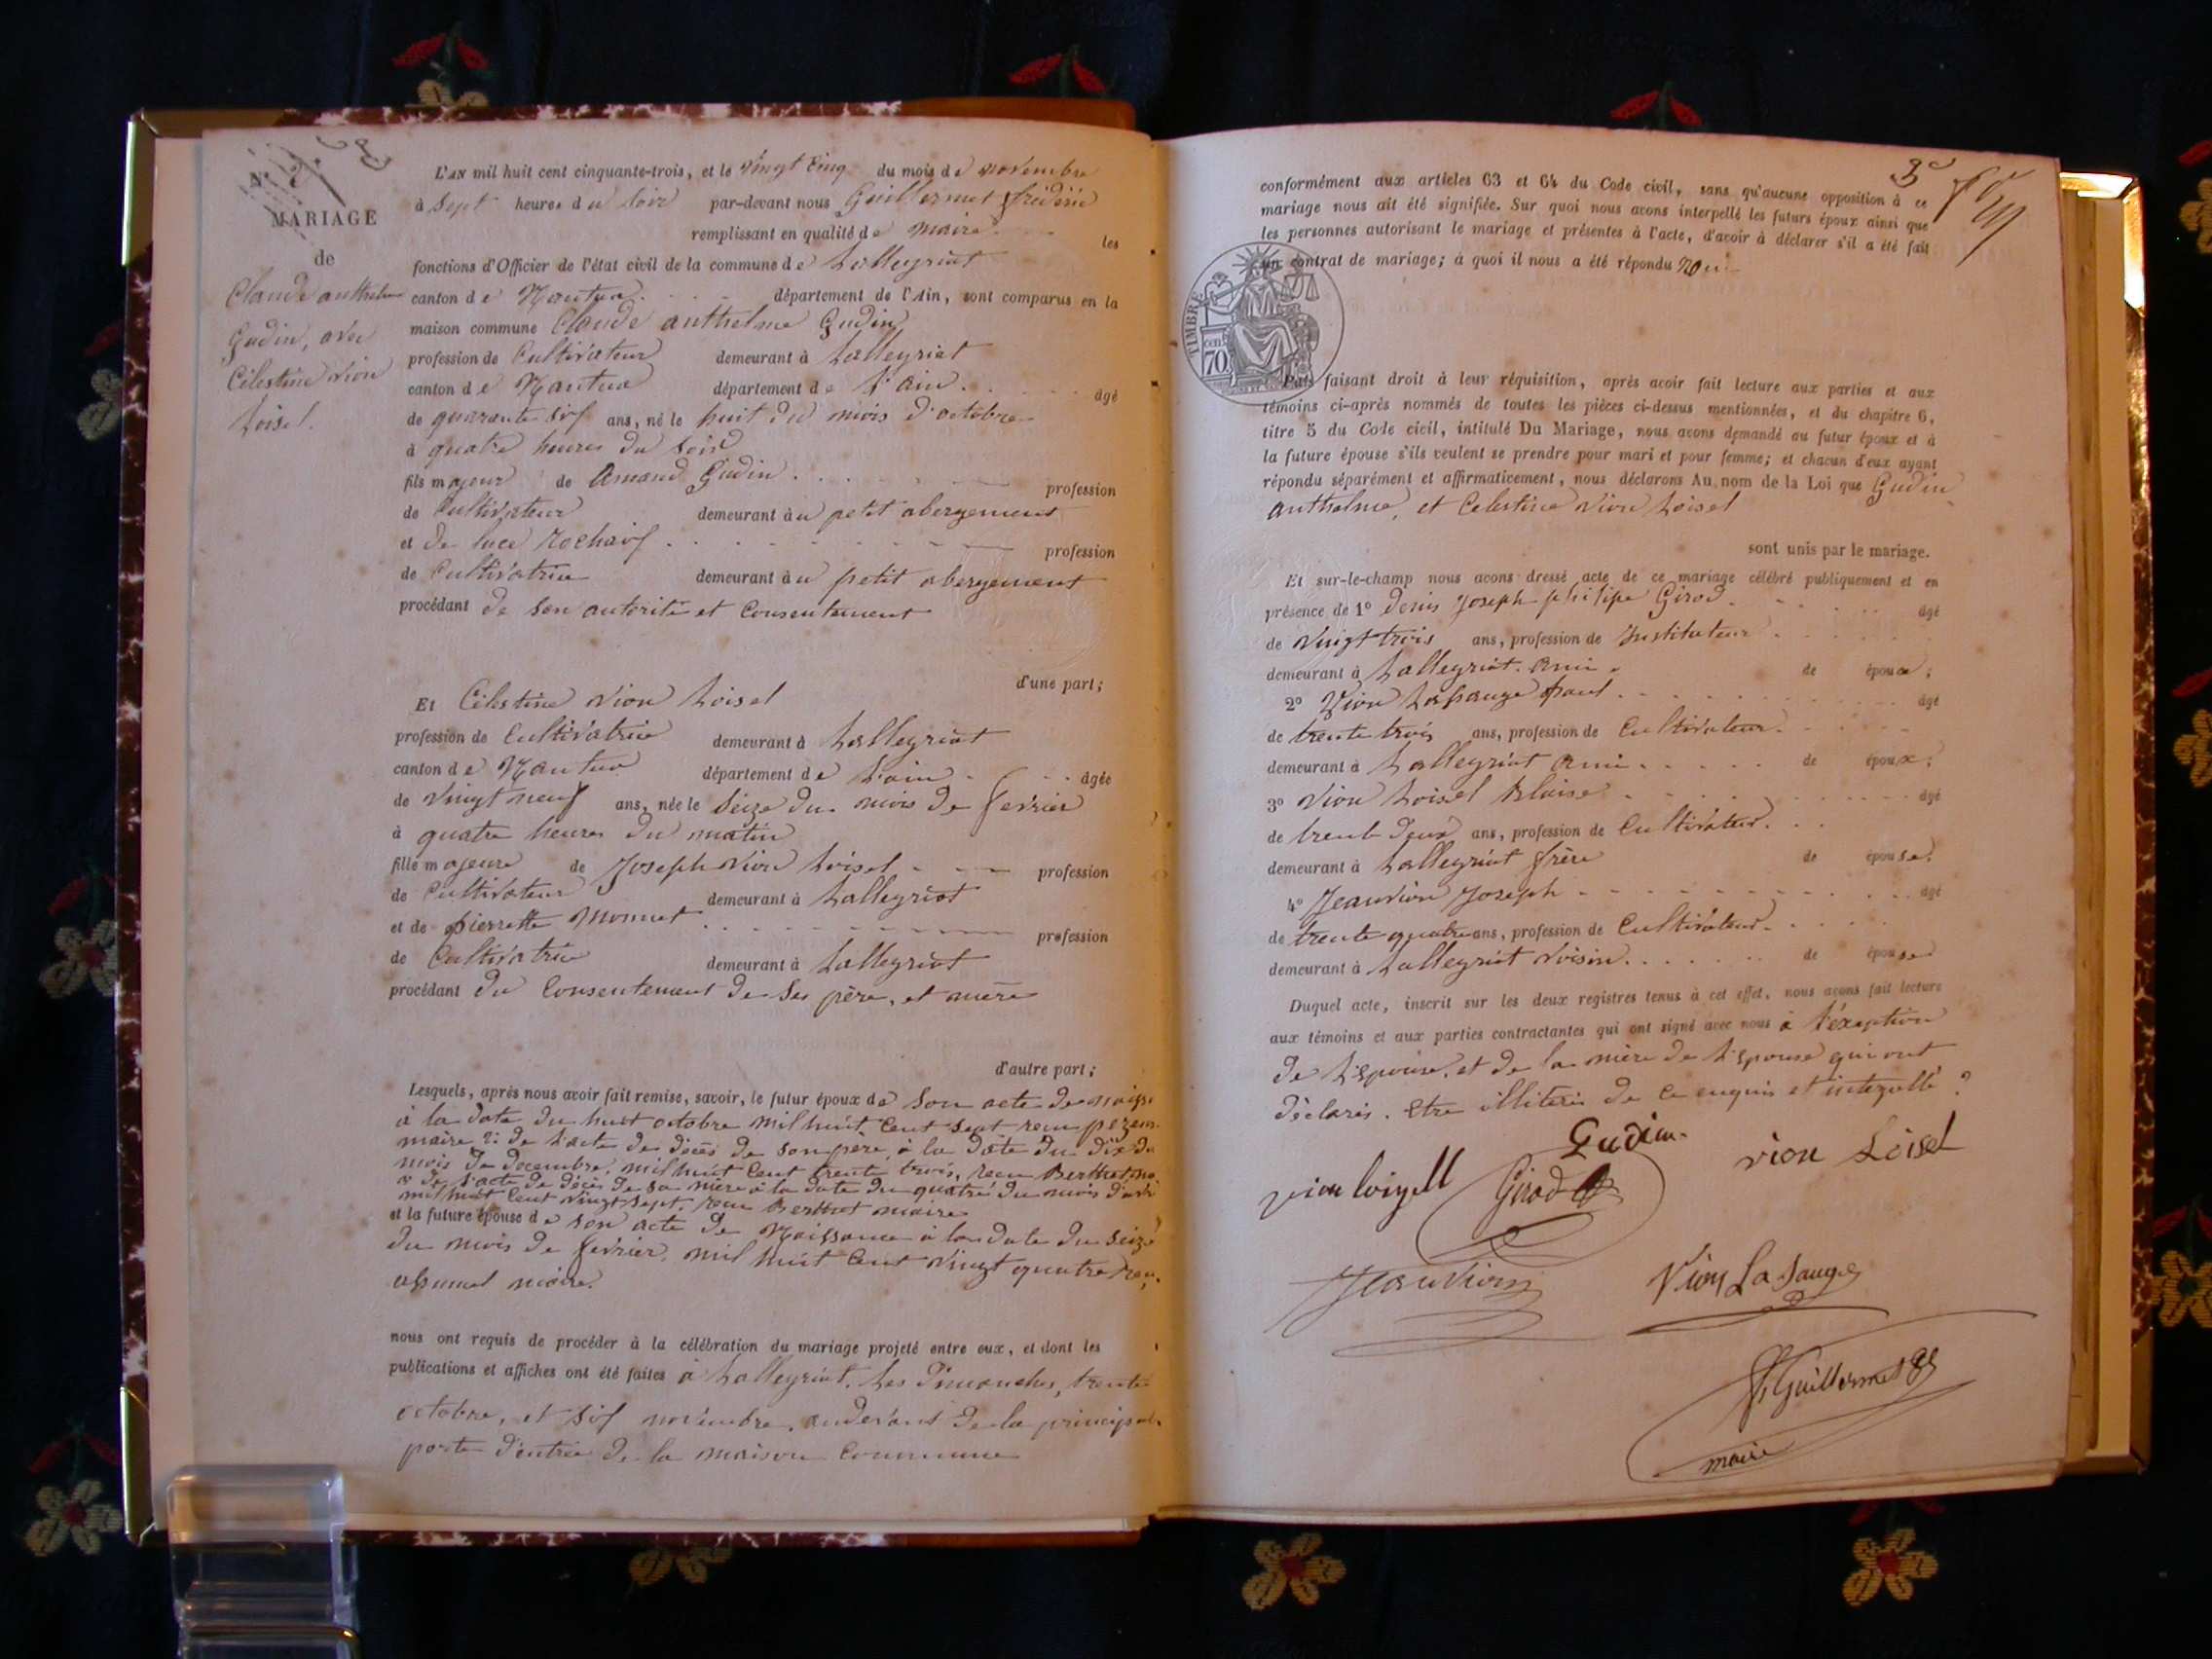 MARIAGE
de
Claude anthelme
Gudin, avec
Célestine Vion
Loisel.
L'AN mil huit cent cinquante-trois, et le vingt cinq du mois de novembre
à sept heures du soir par-devant nous Guillermet frédéric
remplissant en qualité de maire les
fonctions d'Officier de l'état civil de la commune de Lalleyriat
canton de Nantua département de l'Ain, sont comparus en la
maison commune Claude anthelme Gudin
profession de Cultivateur demeurant à Lalleyriat
canton de Nantua département de l'ain âgé
de quarante six ans, né le huit du mois d'octobre
à quatre heures du soir
fils majeur de Amand Gudin profession
de Cultivateur demeurant au petit abergement
et de luce Rochaix profession
de Cultivatrice demeurant au petit abergement
procédant de son autorité et Consentement
d'une part;
Et Célestine Vion Loisel
profession de Cultivatrice demeurant à Lalleyriat
canton de Nantua département de L'ain âgée
de Vingt neuf ans, née le Seize du mois de fevrier
à quatre heures du matin
fille majeure de Joseph Vion Loisel profession
de Cultivateur demeurant à Lalleyriat
et de pierrette Monnet profession
de Cultivatrice demeurant à Lalleyriat
procédant du Consentement de ses père, et mère
d'autre part;
Lesquels, après nous avoir fait remise, savoir, le futur époux de son acte de
à la date du huit octobre mil huit Cent sept recu
maire 2: de l'acte de décès de son père, à la date du dix du
mois de decembre, mil huit Cent trente trois, recu Berthet
3º de l'acte de décès de sa mère à la date du quatre du mois
mil huit Cent vingt sept, recu Berthet maire
et la future épouse de son acte de Naissance à la date du seize
du mois de fevrier, mil huit Cent vingt quatre
maire.
nous ont requis de procéder à la célébration du mariage projeté entre eux, et dont les
publications et affiches ont été faites à Lalleyriat, les Dimanches, trente
octobre, et six novembre, audevant de la principale
porte d'entrée de la maison Commune
3e
conformément aux articles 63 et 64 du Code civil, sans qu'aucune opposition à ce
mariage nous ait été signifiée. Sur quoi nous avons interpellé les futurs époux ainsi que
les personnes autorisant le mariage et présentes à l'acte, d'avoir à déclarer s'il a été fait
un contrat de mariage; à quoi il nous a été répondu non
TIMBRE
cen.
70
Puis faisant droit à leur réquisition, après avoir fait lecture aux parties et aux
témoins ci-après nommés de toutes les pièces ci-dessus mentionnées, et du chapitre 6,
titre 5 du Code civil, intitulé Du Mariage, nous avons demandé au futur époux et à
la future épouse s'ils veulent se prendre pour mari et pour femme; et chacun d'eux ayant
répondu séparément et affirmativement, nous déclarons Au nom de la Loi que Gudin
anthelme, et Celestine Vion Loisel
sont unis par le mariage.
Et sur-le-champ nous avons dressé acte de ce mariage célébré publiquement et en
présence de 1º Denis Joseph philipe Girod âgé
de Vingt trois ans, profession de Instituteur
demeurant à Lalleyriat. ami de époux;
2º Vion Lasauge paul âgé
de trente trois ans, profession de Cultivateur
demeurant à Lalleyriat ami de époux;
3º Vion Loisel Blaise âgé
de trente deux ans, profession de Cultivateur
demeurant à Lalleyriat frère de épouse;
4º Jeanvion Joseph âgé
de trente quatre ans, profession de Cultivateur
demeurant à Lalleyriat voisin de épouse
Duquel acte, inscrit sur les deux registres tenus à cet effet, nous avons fait lecture
aux témoins et aux parties contractantes qui ont signé avec nous à l'éxeption
de l'epouse, et de la mère de l'epouse qui ont
déclarés. être illiteris de ce enquis et
Gudin
vion Loisel
vion loizell
Girod
Jeanvion
Vion La Sauge
Guillermet
maire